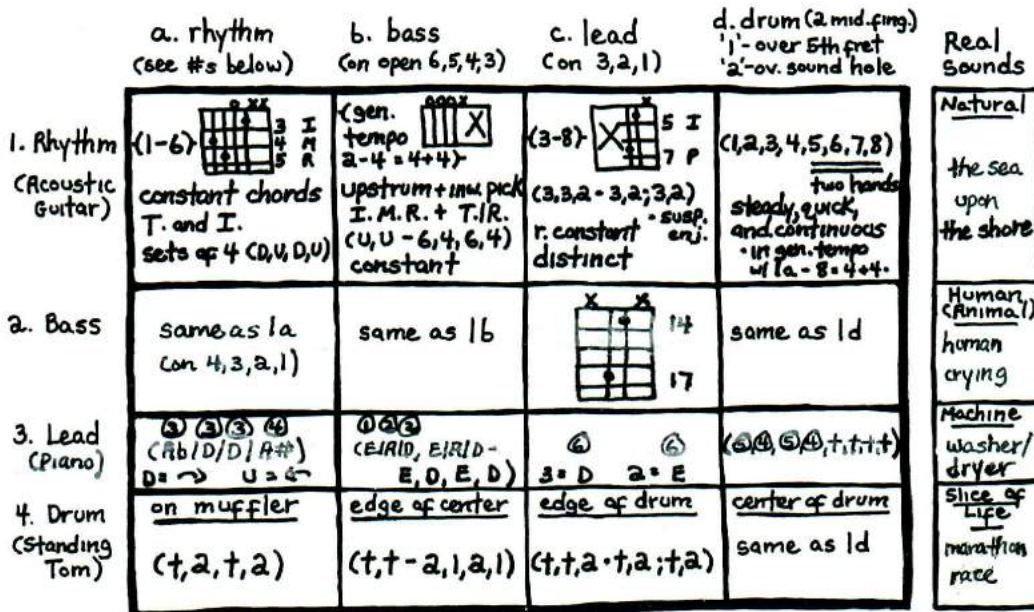 a. rhythm
(see #s below)
b. bass
(on open 6,5,4,3)
c. lead
(on 3,2,1)
d. drum (2 mid. fing.)
'1'- over 5th fret
'2'- ov. sound hole
Real
Sounds
1. Rhythm
(Acoustic
Guitar)
(1-6)
o xx
3 I
4 M
5 R
constant chords
T. and I.
sets of 4 (D,U,D,U)
(gen.
tempo
2-4 = 4+4)
ooox
X
upstrum + ind. pick
I.M.R. + T./R.
(U,U - 6,4,6,4)
constant
(3-8)
x
X
5 I
7 P
(3,3,2 - 3,2; 3,2)
r. constant
• susp.
enj.
distinct
(1,2,3,4,5,6,7,8)
two hands
steady, quick,
and continuous
• in gen. tempo
w/ 1a - 8 = 4+4 •
Natural
the sea
upon
the shore
2. Bass
same as 1a
(on 4,3,2,1)
same as 1b
x x
14
17
same as 1d
Human
(Animal)
human
crying
3. Lead
(Piano)
3 3 3 4
(Ab/D/D/A#)
D= U=
1 2 3
(E/A/D, E/A/D-
E, D, E, D)
6 6
3 = D 2 = E
(5,4,5,4,t,t,t,t)
Machine
washer/
dryer
4. Drum
(Standing
Tom)
on muffler
(t,2,t,2)
edge of center
(t,t - 2,1,2,1)
edge of drum
(t,t,2 • t,2; t,2)
center of drum
same as 1d
Slice of
Life
marathon
race